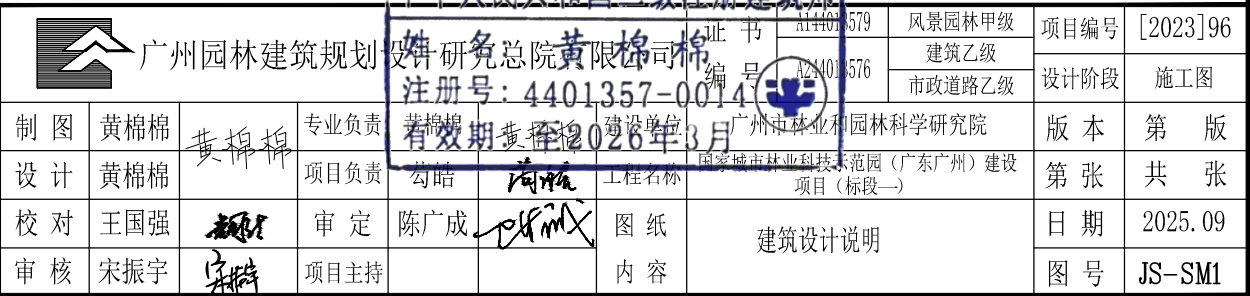 广州园林建筑规划设计研究总院有限公司
证 书
编 号
A144013579
A244013576
风景园林甲级
建筑乙级
市政道路乙级
项目编号 [2023]96
设计阶段 施工图
姓 名：黄 棉 棉
注册号：4401357-0014
有效期：至2026年3月
制 图 黄棉棉 黄棉棉 专业负责 黄棉棉 黄棉棉 建设单位 广州市林业和园林科学研究院 版 本 第 版
设 计 黄棉棉 项目负责 勾皓 工程名称 国家城市林业科技示范园（广东广州）建设
项目（标段一） 第 张 共 张
校 对 王国强 审 定 陈广成 图 纸 建筑设计说明 日 期 2025.09
审 核 宋振宇 项目主持 内 容 图 号 JS-SM1